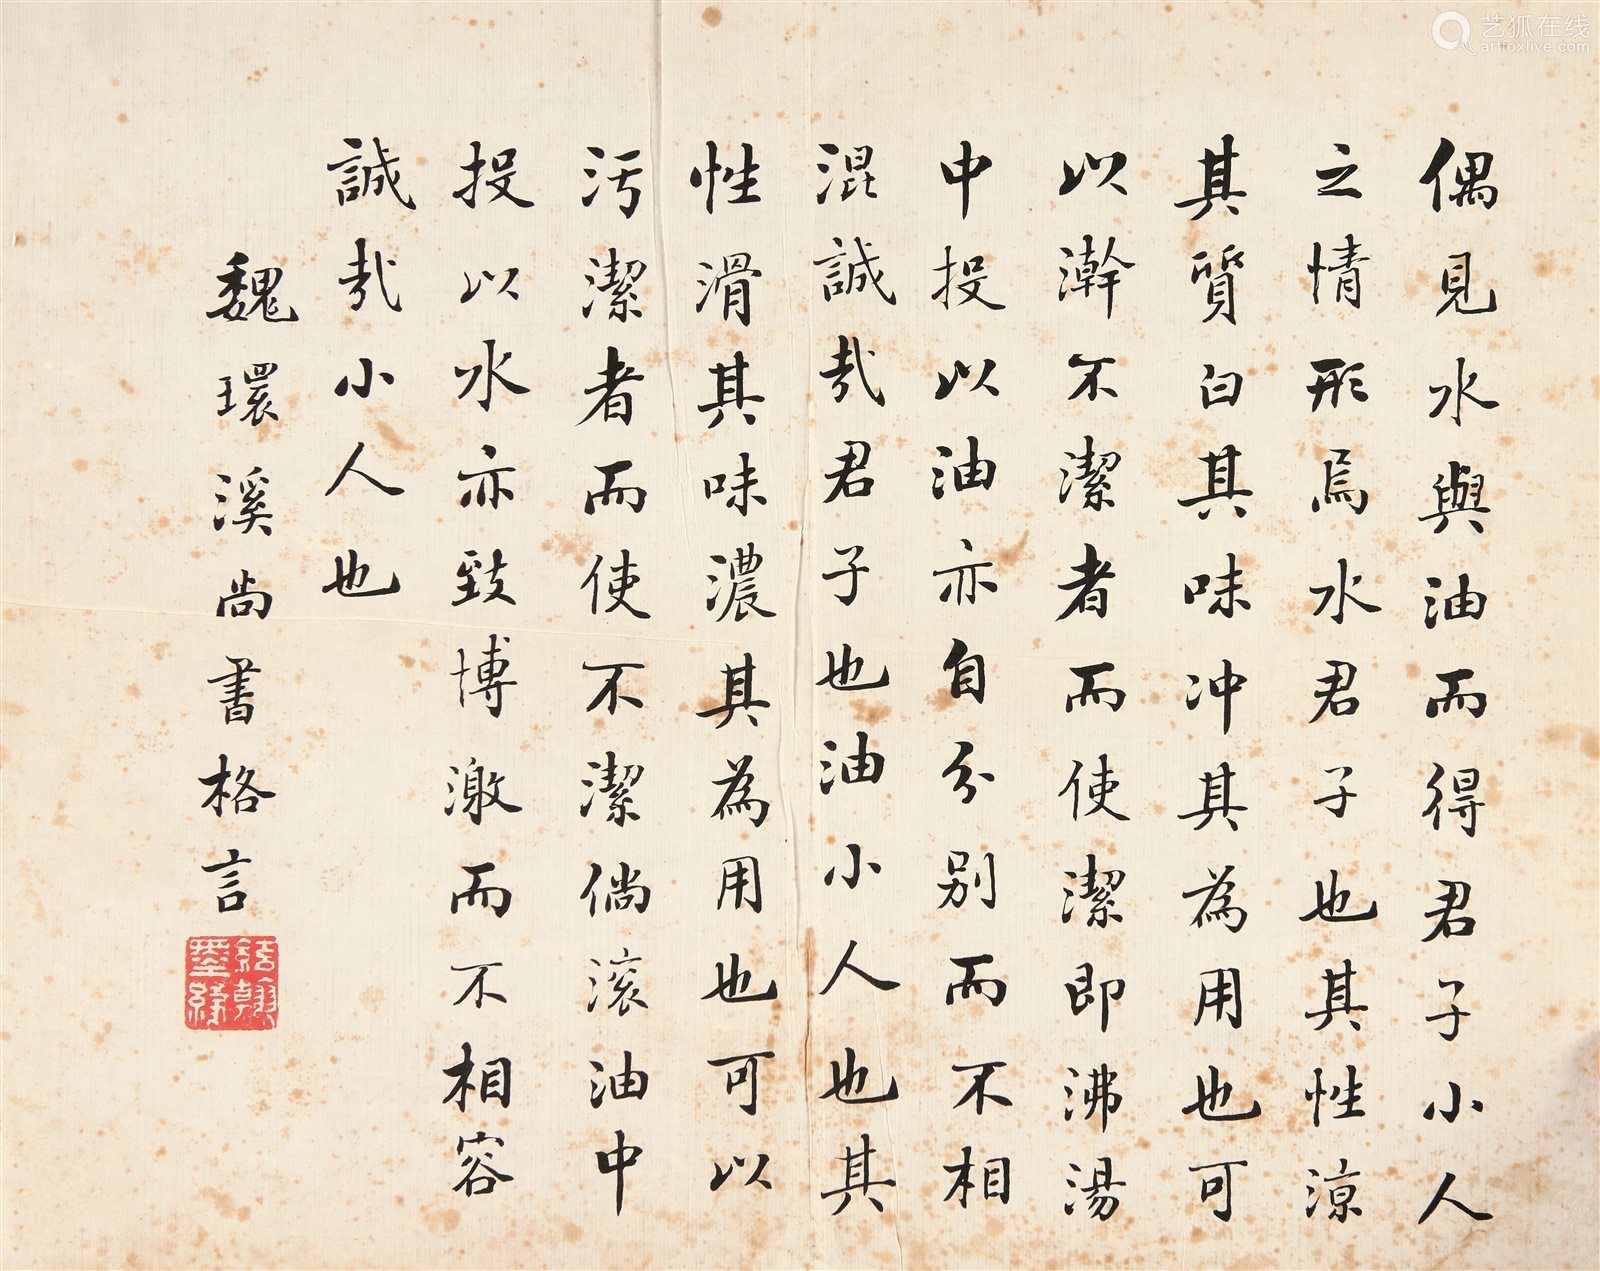 偶見水與油而得君子小人
之情形焉水君子也其性涼
其質白其味冲其為用也可
以澣不潔者而使潔即沸湯
中投以油亦自分别而不相
混誠哉君子也油小人也其
性滑其味濃其為用也可以
污潔者而使不潔倘滚油中
投以水亦致博激而不相容
誠哉小人也
魏環溪尚書格言
結翰
墨緣
艺狐在线
artfoxlive.com